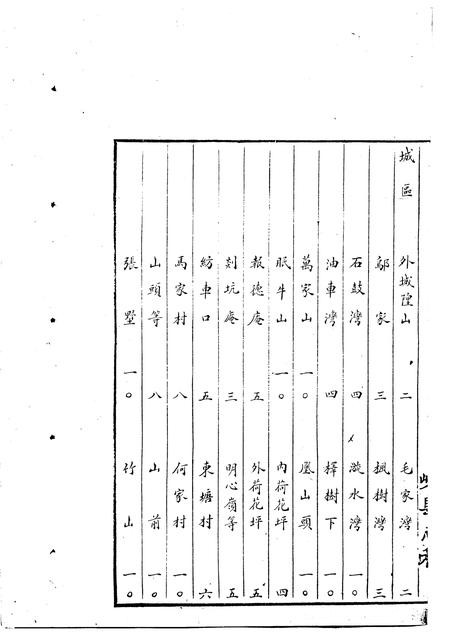 城區 外城隍山 二 毛家灣 二
鄔家 三 楓樹灣 三
石鼓灣 四 漩水灣 一〇
油車灣 四 樹下 一〇
萬家山 一〇 山頭 一〇
眠牛山 一〇 內荷花坪 四
報德庵 五 外荷花坪 五
剡坑庵 三 明心嶺等 五
紡車口 五 東塘村 六
馬家村 八 何家村 一〇
山頭等 八 山前 一〇
張墅 一〇 竹山 一〇